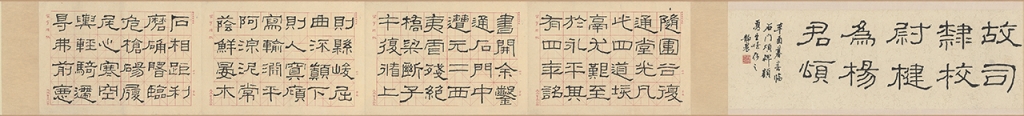 故司
隸校
尉楗
為楊
君頌
辛酉暮春臨
石門頌碑
靜農
隨圍谷復
通堂光凡
此四道垓
鬲尤艱至
於永平其
有四年詔
書開余鑿
通石門中
遭元二西
夷虐殘橋
梁斷絕子
午復循上
則縣峻屈
曲流顛下
則入冥傾
寫輸淵平
阿湶泥常
蔭鮮晏木
石相距利
磨确磐臨
危槍碭履
尾心寒空
輿輕騎遰
㝵弗前惡